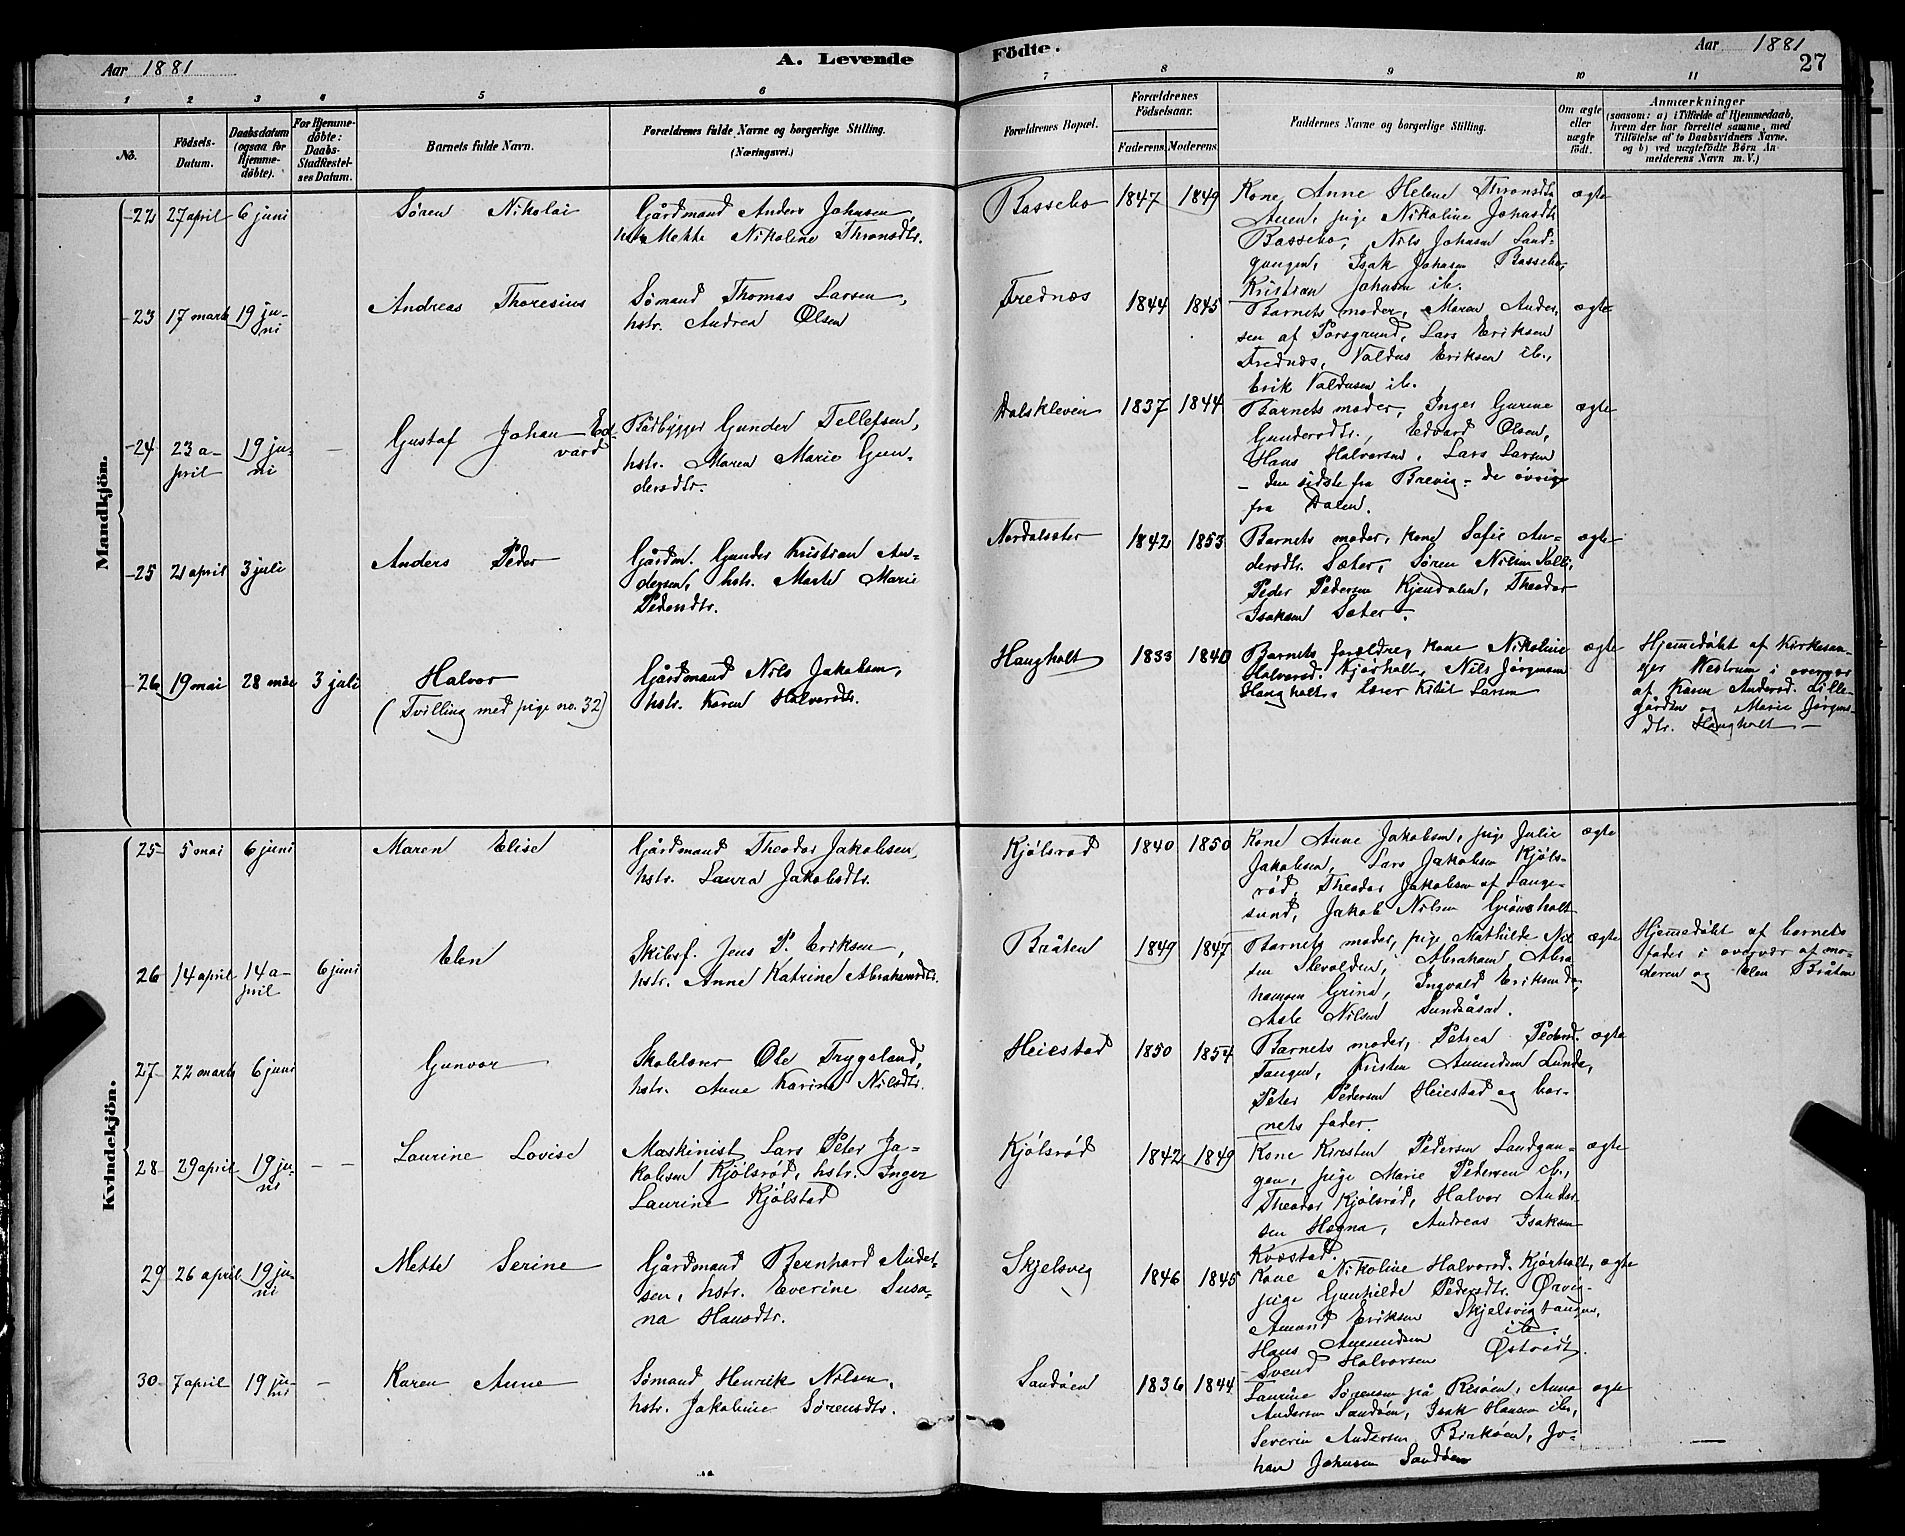 Aar 1881
A. Levende
Födte.
Aar 1881
27
1 2 3 4 5 6 7 8 9 10 11
No.
Födsels-
Datum.
Daabsdatum
(ogsaa for
Hjemme-
döbte).
For Hjemme-
döbte:
Daabs-
Stadfæstel-
ses Datum.
Barnets fulde Navn.
Forældrenes fulde Navne og borgerlige Stilling.
(Næringsvei.)
Forældrenes Bopæl.
Forældrenes
Födselsaar.
Faderens. Moderens.
Faddernes Navne og borgerlige Stilling.
Om ægte
eller
uægte
født.
Anmærkninger
(saasom: a) i Tilfælde af Hjemmedaab,
hvem der har forrettet samme, med
Tilføielse af to Daabsvidners Navne,
og b) ved uægtefödte Börn An-
melderens Navn m.V.)
Mandkjön.
22 27 april 6 juni
Søren Nikolai
Gårdmand Anders Johnsen,
hstr. Mekke Nikoline Thronsdtr.
Bassebo 1847 1849
Kone Anne Helene Thronsdtr
Auen, pige Nikoline Johnsdtr
Bassebo, Nils Johnsen Sand-
gangen, Isak Johnsen Bassebo,
Kristian Johnsen ib.
ægte
23 17 marts 19 ju-
ni
Andreas Thoresius
Sømand Thomas Larsen,
hstr. Andrea Olsen
Frednæs 1844 1845
Barnets moder, Maren Ander-
sen af Porsgrund, Lars Eriksen
Frednæs, Valdus Eriksen ib.,
Erik Valdusen ib.
ægte
24 23 a-
pril 19 ju-
ni –
Gustaf Johan Ed-
vard
Bådbygger Gunder Tellefsen,
hstr. Maren Marie Gun-
dersdtr.
Dalskleven 1837 1844
Barnets moder, Inger Gurine
Gundersdtr., Edvard Olsen,
Hans Halvorsen, Lars Larsen
– den sidste fra Brevig – de øvrige
fra Dalen.
ægte
25 21 april 3 juli
Anders Peder
Gårdm. Gunder Kristian An-
dersen, hstr. Marte Marie
Pedersdtr.
Nordalsæter 1842 1853
Barnets moder, kone Sofie An-
dersdtr. Sæter, Søren Nilsen Salli,
Peder Pedersen Kjendalen, Theodor
Isaksen Sæter.
ægte
26 19 mai 28 mai 3 juli
Halvor
(Tvilling med pige no. 32)
Gårdmand Nils Jakobsen,
hstr. Karen Halvorsdtr.
Haugholt 1833 1840
Barnets forældre, kone Nikoline
Halvorsd. Kjørholt, Nils Jørgensen
Haugholt, Lars Larsen
ægte
Hjemmedøbt af Kirkesan-
ger Vestrum i overvær
af Karen Andersd. Lille-
gården og Marie Jørgens-
dtr. Haugholt –
Kvindekjön.
25 5 mai 6 juni
Maren Elise
Gårdmand Theodor Jakobsen,
hstr. Laura Jakobsdtr.
Kjølsrød 1840 1850
Kone Anne Jakobsen, pige Julie
Jakobsen, Lars Jakobsen Kjøls-
rød, Theodor Jakobsen af Lange-
sund, Jakob Nilsen Grønsholt
ægte
26 14 april 14 a-
pril 6 juni
Elen
Skibsf. Jens P. Eriksen,
hstr. Anne Katrine Abrahamsdtr.
Bråten 1849 1847
Barnets moder, pige Mathilde Nil-
sen Slevolden, Abraham Abra-
hamsen Grina, Ingvald Eriksen do,
Asle Nilsen Sundsåsen.
ægte
Hjemmedøbt af barnets
fader i overvær af mo-
deren og Elen Bråten
27 22 marts 6 juni
Gunvor
Skolelærer Ole Trygsland,
hstr. Anne Karine Nilsdtr.
Heiestad 1850 1854
Barnets moder, Petrea Pedersd.
Tangen, Kristen Amundsen Lunde,
Peter Pedersen Heiestad og bar-
nets fader.
ægte
28 29 april 19 ju-
ni – –
Laurine Lovise
Maskinist Lars Peter Ja-
kobsen Kjølsrød, hstr. Inger
Laurine Kjølstad
Kjølsrød 1842 1849
Kone Kirsten Pedersen Sandgan-
gen, pige Marie Pedersen ib.,
Theodor Kjølsrød, Halvor Ander-
sen Høgna, Andreas Isaksen
Kvæstad.
ægte
29 26 april 19 ju-
ni
Mette Serine
Gårdmand Bernhard Ander-
sen, hstr. Everine Susa-
na Hansdtr.
Skjelsvig 1846 1845
Kone Nikoline Halvorsd. Kjørholt,
pige Gunhilde Pedersdtr. Ørvig,
Amund Eriksen Skjelsvigtangen,
Hans Amundsen ib.
Svend Halvorsen Østvedt.
ægte
30 7 april 19 ju-
ni –
Karen Anne
Sømand Henrik Nilsen,
hstr. Jakobine Sørensdtr.
Sandøen 1836 1844
Laurine Sørensen på Risøen, Anna
Andersen Sandøen, Isak Hansen ib.,
Severin Andersen Birkøen, Jo-
han Johnsen Sandøen
ægte